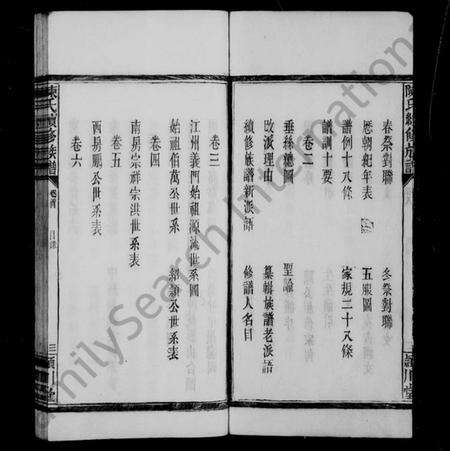 陳氏續修族譜
春祭對聯 冬祭對聯
歷朝紀年表 五服圖
譜例十八條 家規二十八條
譜訓十要
卷二
垂絲總圖 聖諭
改派理由 纂輯族譜老派語
續修族譜新派語 修譜人名目
卷三
江州義門始祖源流世系圖
始祖伯萬公世系 紹顏公世系表
卷四
南房宗祥宗洪世系表
卷五
西房顯公世系表
卷六
陳氏續修族譜 卷首 目錄 三 潁川堂
FamilySearch International